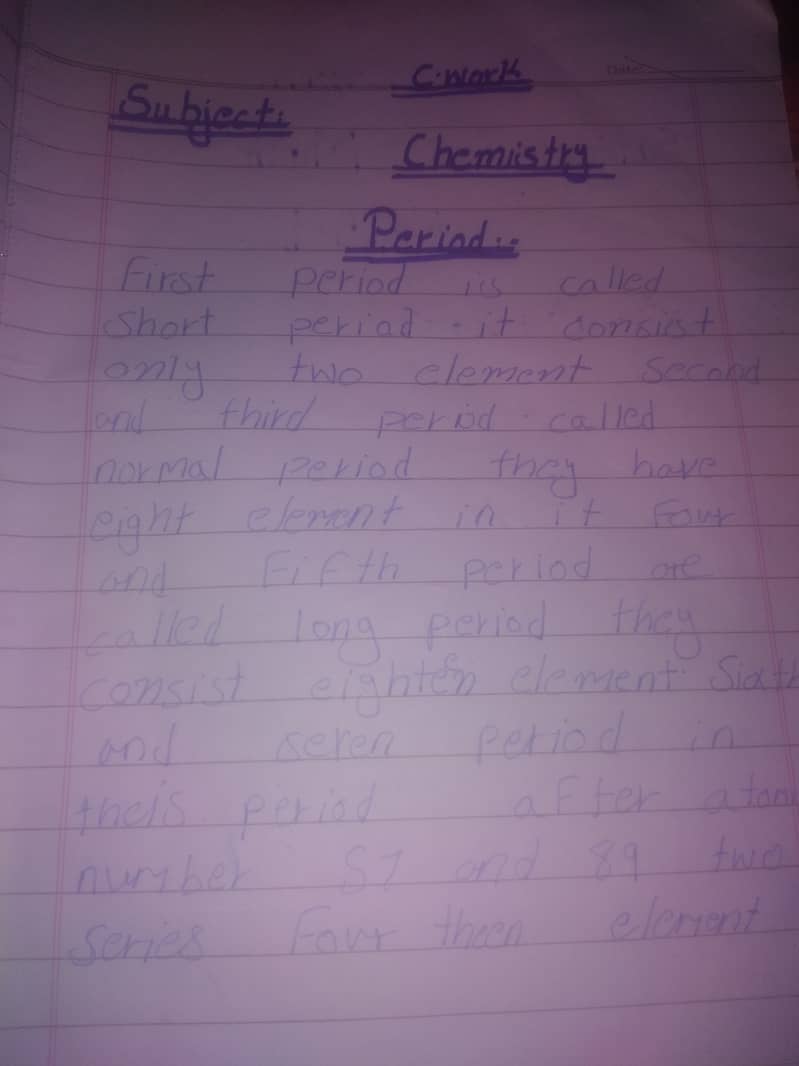 C.work
Subject:
Chemistry
Period:
First period is called
Short period. it consist
only two element Second
and third period called
normal period they have
eight element in it Four
and Fifth period are
called long period they
consist eighteen element. Sixth
and seven period in
theis period after atom
number 57 and 89 two
series Four theen element